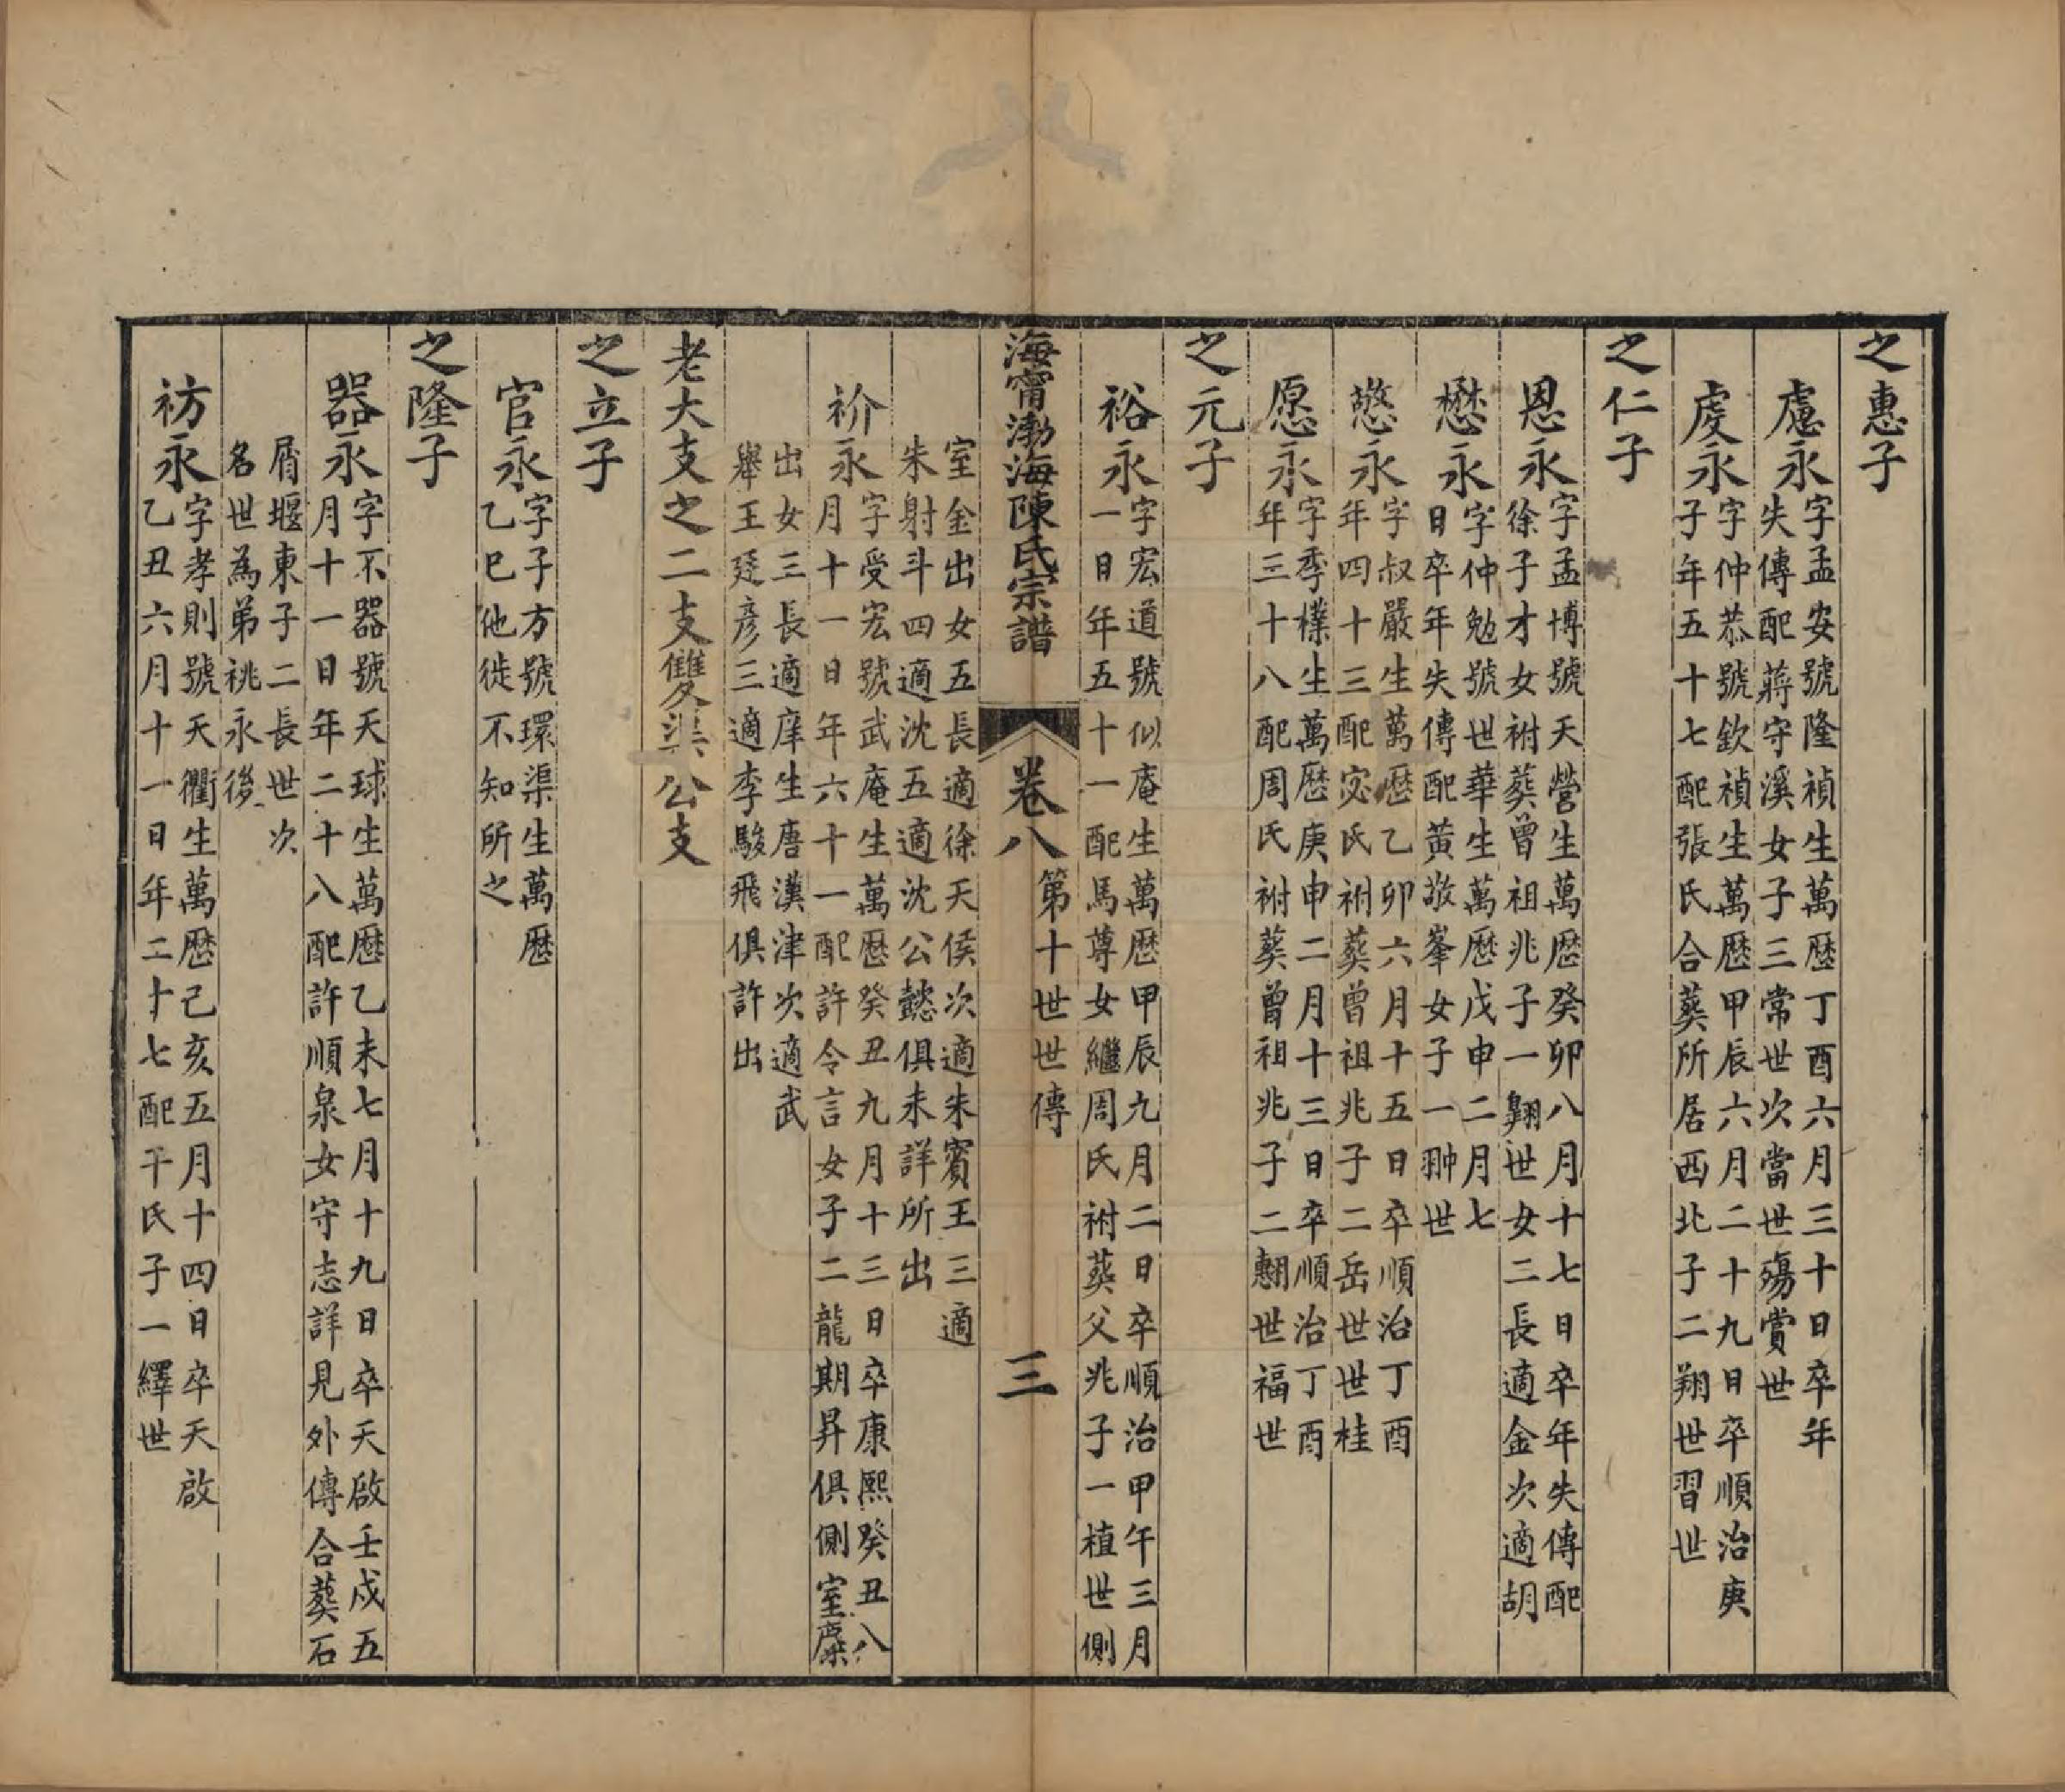 之惠子
慮永
字孟安號隆禎生萬歷丁酉六月三十日卒年
失傳配蔣守溪女子三常世次當世殤賞世
虔永
字仲恭號欽禎生萬歷甲辰六月二十九日卒順治庚
子年五十七配張氏合葬所居西北子二翔世習世
之仁子
恩永
字孟博號天營生萬歷癸卯八月十七日卒年失傳配
徐子才女祔葬曾祖兆子一翱世女二長適金次適胡
懋永
字仲勉號世華生萬歷戊申二月七
日卒年失傳配黃敬峯女子一翀世
憼永
字叔嚴生萬歷乙卯六月十五日卒順治丁酉
年四十三配宓氏祔葬曾祖兆子二岳世世桂
愿永
字季樸生萬歷庚申二月十三日卒順治丁酉
年三十八配周氏祔葬曾祖兆子二翽世福世
之元子
裕永
字宏道號似庵生萬歷甲辰九月二日卒順治甲午三月
一日年五十一配馬尊女繼周氏祔葬父兆子一植世側
海甯渤海陳氏宗譜
卷八
第十世世傳
三
室金出女五長適徐天侯次適朱賓王三適
朱射斗四適沈五適沈公懿俱未詳所出
祄永
字受宏號武庵生萬歷癸丑九月十三日卒康熙癸丑八
月十一日年六十一配許令言女子二龍期昇俱側室糜
出女三長適庠生唐漢津次適武
舉王廷彥三適李駿飛俱許出
老大支之二支雙渠公支
之立子
官永
字子方號環渠生萬歷
乙巳他徙不知所之
之隆子
器永
字不器號天球生萬歷乙未七月十九日卒天啟壬戌五
月十一日年二十八配許順泉女守志詳見外傳合葬石
屑堰東子二長世次
名世為弟祧永後
祊永
字孝則號天衢生萬歷己亥五月十四日卒天啟
乙丑六月十一日年二十七配干氏子一繹世